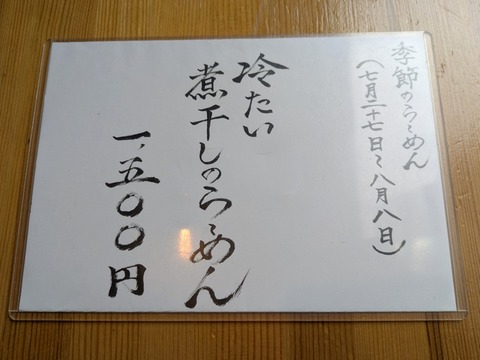 季節のらーめん
(七月二十七日〜八月八日)
冷たい
煮干しのらーめん
一、五〇〇円